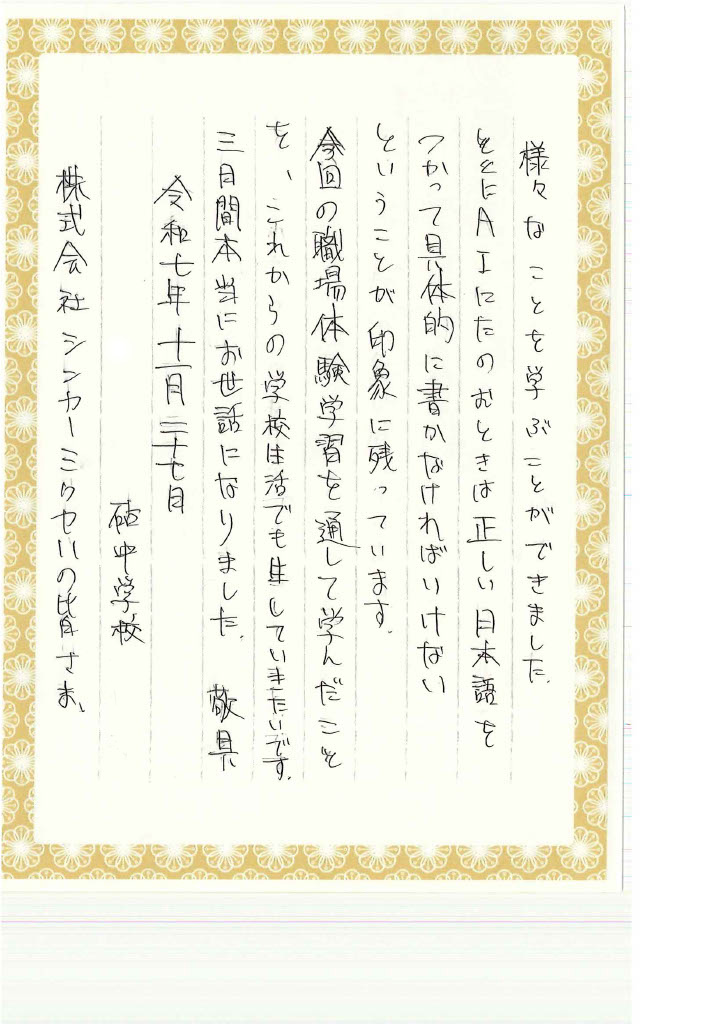 様々なことを学ぶことができました。
とくにAIにたのむときは正しい日本語を
つかって具体的に書かなければいけない
ということが印象に残っています。
今回の職場体験学習を通して学んだこと
を、これからの学校生活でも生していきたいです。
三日間本当にお世話になりました。 敬具
令和七年十一月二十七日
砧中学校
株式会社シンカーミクセルの皆さま、